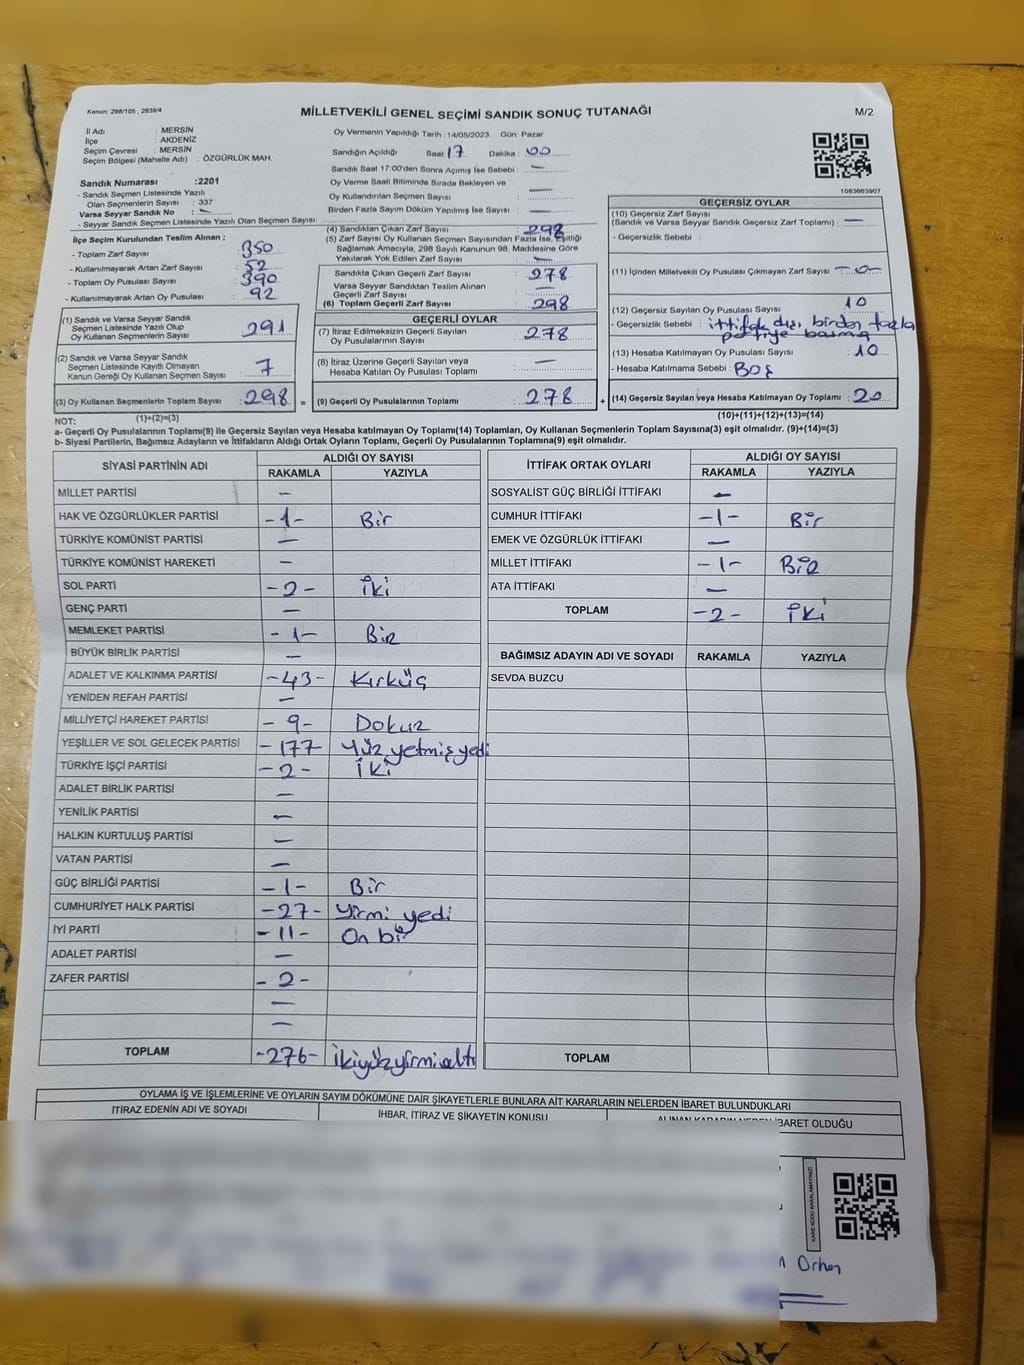 Kanun: 298/105 , 2839/4
MİLLETVEKİLİ GENEL SEÇİMİ SANDIK SONUÇ TUTANAĞI
M/2
İl Adı : MERSİN
İlçe : AKDENİZ
Seçim Çevresi : MERSİN
Seçim Bölgesi (Mahalle Adı) : ÖZGÜRLÜK MAH.
Sandık Numarası :2201
- Sandık Seçmen Listesinde Yazılı
Olan Seçmenlerin Sayısı : 337
Varsa Seyyar Sandık No : —
- Seyyar Sandık Seçmen Listesinde Yazılı Olan Seçmen Sayısı:
Oy Vermenin Yapıldığı Tarih : 14/05/2023 Gün: Pazar
Sandığın Açıldığı Saat: 17 Dakika : 00
Sandık Saat 17:00'den Sonra Açımış İse Sebebi : —
Oy Verme Saati Bitiminde Sırada Bekleyen ve
Oy Kullandırılan Seçmen Sayısı : —
Birden Fazla Sayım Döküm Yapılmış İse Sayısı : —
1083663907
İlçe Seçim Kurulundan Teslim Alınan ;
- Toplam Zarf Sayısı : 350
- Kullanılmayarak Artan Zarf Sayısı : 52
- Toplam Oy Pusulası Sayısı : 390
- Kullanılmayarak Artan Oy Pusulası : 92
(1) Sandık ve Varsa Seyyar Sandık
Seçmen Listesinde Yazılı Olup
Oy Kullanan Seçmenlerin Sayısı : 291
(2) Sandık ve Varsa Seyyar Sandık
Seçmen Listesinde Kayıtlı Olmayan
Kanun Gereği Oy Kullanan Seçmen Sayısı : 7
(3) Oy Kullanan Seçmenlerin Toplam Sayısı : 298 =
(4) Sandıktan Çıkan Zarf Sayısı : 298
(5) Zarf Sayısı Oy Kullanan Seçmen Sayısından Fazla İse, Eşitliği
Sağlamak Amacıyla, 298 Sayılı Kanunun 98. Maddesine Göre
Yakılarak Yok Edilen Zarf Sayısı : —
Sandıkta Çıkan Geçerli Zarf Sayısı : 278
Varsa Seyyar Sandıktan Teslim Alınan
Geçerli Zarf Sayısı : —
(6) Toplam Geçerli Zarf Sayısı : 298
GEÇERLİ OYLAR
(7) İtiraz Edilmeksizin Geçerli Sayılan
Oy Pusulalarının Sayısı : 278
(8) İtiraz Üzerine Geçerli Sayılan veya
Hesaba Katılan Oy Pusulası Toplamı : —
(9) Geçerli Oy Pusulalarının Toplamı : 278 +
GEÇERSİZ OYLAR
(10) Geçersiz Zarf Sayısı
(Sandık ve Varsa Seyyar Sandık Geçersiz Zarf Toplamı) : —
- Geçersizlik Sebebi :
(11) İçinden Milletvekili Oy Pusulası Çıkmayan Zarf Sayısı : -0-
(12) Geçersiz Sayılan Oy Pusulası Sayısı : 10
- Geçersizlik Sebebi : ittifak dışı birden fazla
partiye basma
(13) Hesaba Katılmayan Oy Pusulası Sayısı : 10
- Hesaba Katılmama Sebebi : Boş
(14) Geçersiz Sayılan veya Hesaba Katılmayan Oy Toplamı : 20
NOT: (1)+(2)=(3)
(10)+(11)+(12)+(13)=(14)
a- Geçerli Oy Pusulalarının Toplamı(9) ile Geçersiz Sayılan veya Hesaba katılmayan Oy Toplamı(14) Toplamları, Oy Kullanan Seçmenlerin Toplam Sayısına(3) eşit olmalıdır. (9)+(14)=(3)
b- Siyasi Partilerin, Bağımsız Adayların ve İttifakların Aldığı Ortak Oyların Toplamı, Geçerli Oy Pusulalarının Toplamına(9) eşit olmalıdır.
SİYASİ PARTİNİN ADI ALDIĞI OY SAYISI
RAKAMLA YAZIYLA
MİLLET PARTİSİ —
HAK VE ÖZGÜRLÜKLER PARTİSİ -1- Bir
TÜRKİYE KOMÜNİST PARTİSİ —
TÜRKİYE KOMÜNİST HAREKETİ —
SOL PARTİ -2- iki
GENÇ PARTİ —
MEMLEKET PARTİSİ -1- Bir
BÜYÜK BİRLİK PARTİSİ —
ADALET VE KALKINMA PARTİSİ -43- Kırküç
YENİDEN REFAH PARTİSİ —
MİLLİYETÇİ HAREKET PARTİSİ -9- Dokuz
YEŞİLLER VE SOL GELECEK PARTİSİ -177- Yüz yetmiş yedi
TÜRKİYE İŞÇİ PARTİSİ -2- İki
ADALET BİRLİK PARTİSİ —
YENİLİK PARTİSİ —
HALKIN KURTULUŞ PARTİSİ —
VATAN PARTİSİ —
GÜÇ BİRLİĞİ PARTİSİ -1- Bir
CUMHURİYET HALK PARTİSİ -27- Yirmi yedi
İYİ PARTİ -11- On bir
ADALET PARTİSİ —
ZAFER PARTİSİ -2-
—
—
TOPLAM -276- İkiyüzyirmialtı
İTTİFAK ORTAK OYLARI ALDIĞI OY SAYISI
RAKAMLA YAZIYLA
SOSYALİST GÜÇ BİRLİĞİ İTTİFAKI —
CUMHUR İTTİFAKI -1- Bir
EMEK VE ÖZGÜRLÜK İTTİFAKI —
MİLLET İTTİFAKI -1- Bir
ATA İTTİFAKI —
TOPLAM -2- İki
BAĞIMSIZ ADAYIN ADI VE SOYADI RAKAMLA YAZIYLA
SEVDA BUZCU
TOPLAM
OYLAMA İŞ VE İŞLEMLERİNE VE OYLARIN SAYIM DÖKÜMÜNE DAİR ŞİKAYETLERLE BUNLARA AİT KARARLARIN NELERDEN İBARET BULUNDUKLARI
İTİRAZ EDENİN ADI VE SOYADI İHBAR, İTİRAZ VE ŞİKAYETİN KONUSU ALINAN KARARIN NEDEN İBARET OLDUĞU
KARE KODU KARALAMAYINIZ
Orhan